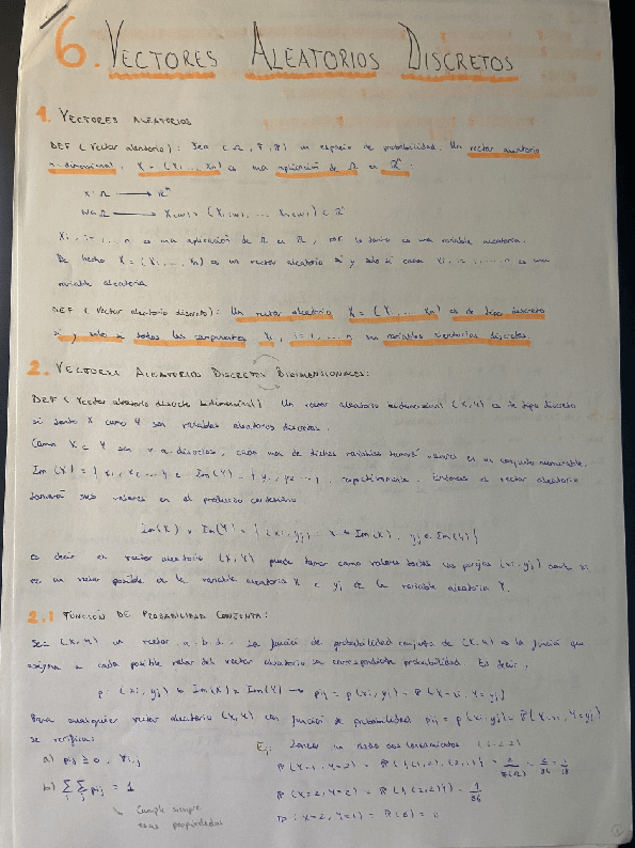 6. VECTORES ALEATORIOS DISCRETOS
1. VECTORES ALEATORIOS
DEF (Vector aleatorio): Sea (Ω, F, P) un espacio de probabilidad. Un vector aleatorio
n-dimensional, X = (X1, ... Xn) es una aplicación de Ω en ℝⁿ:
X: Ω → ℝⁿ
w∈Ω → X(w) = (X1(w), ... Xn(w)) ∈ ℝⁿ
Xi, i=1,...n es una aplicación de Ω en ℝ, por lo tanto es una variable aleatoria.
De hecho X = (X1, ... Xn) es un vector aleatorio si y solo si cada Xi, i=1,...,n es una
variable aleatoria
DEF (Vector aleatorio discreto): Un vector aleatorio X = (X1, ... Xn) es de tipo discreto
si y solo si todas las componentes Xi, i=1, ... n son variables aleatorias discretas.
2. VECTORES ALEATORIOS DISCRETOS BIDIMENSIONALES:
DEF (Vector aleatorio discreto bidimensional) Un vector aleatorio bidimensional (X,Y) es de tipo discreto
si tanto X como Y son variables aleatorias discretas.
Como X e Y son v.a. discretas, cada una de dichas variables tomará valores en un conjunto numerable,
Im(X) = {x1, x2, ...} e Im(Y) = {y1, y2 ...}, respectivamente. Entonces el vector aleatorio
tomará sus valores en el producto cartesiano
Im(X) x Im(Y) = {(xi, yj) : xi ∈ Im(X), yj ∈ Im(Y)}
es decir el vector aleatorio (X,Y) puede tomar como valores todas las parejas (xi, yj) donde xi
es un valor posible de la variable aleatoria X e yj de la variable aleatoria Y.
2.1 FUNCIÓN DE PROBABILIDAD CONJUNTA:
Sea (X,Y) un vector a.b.d. La función de probabilidad conjunta de (X,Y) es la función que
asigna a cada posible valor del vector aleatorio su correspondiente probabilidad. Es decir,
p: (xi, yj) ∈ Im(X) x Im(Y) → pij = p(xi, yj) = P(X=xi, Y=yj)
Para cualquier vector aleatorio (X,Y) con función de probabilidad pij = p(xi, yj) = P(X=xi, Y=yj)
se verifica:
Ej: Lanzar un dado dos lanzamientos
a) pij ≥ 0, ∀i,j
P(X=1, Y=2) = P({(1,2), (2,1)}) = 2/36 = 1/18
b) ∑∑ pij = 1
P(X=2, Y=2) = P({(2,2)}) = 1/36
Cumple siempre
estas propiedades
P(X=2, Y=1) = P(∅) = 0